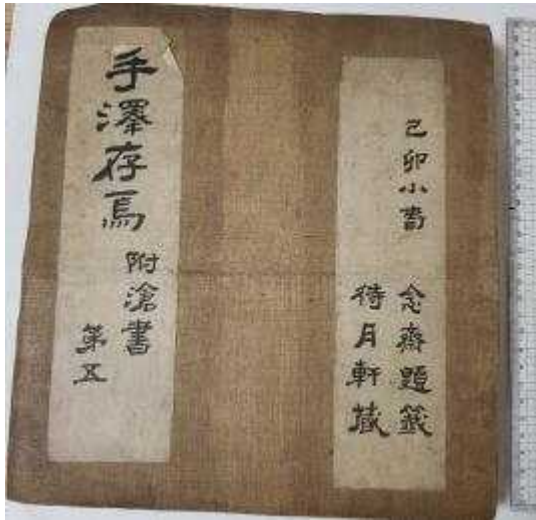 己卯小旾
念齋題籤
待月軒藏
手澤存焉
附滄書
第五